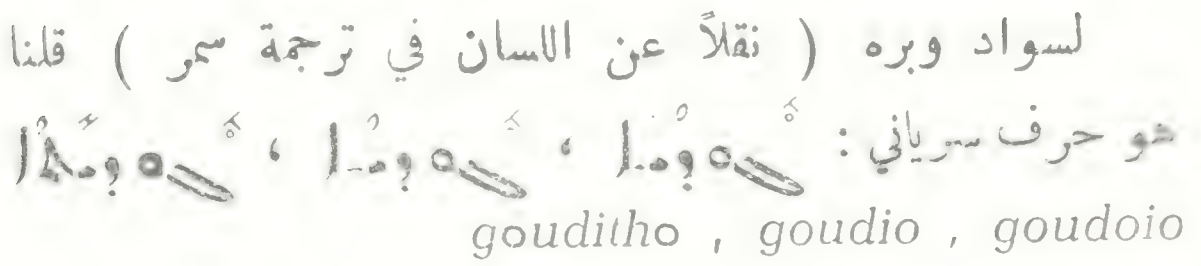 لسواد وبره ( نقلاً عن اللسان في ترجمة سمر ) قلنا
هو حرف سرياني : ܓܽܘܕܳܝܐ ، ܓܽܘܕܝܳܐ ، ܓܽܘܕܺܝܬܳܐ
gouditho , goudio , goudoio